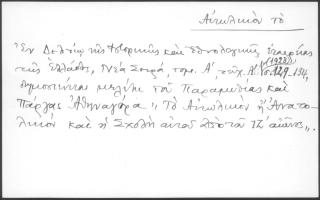 Αἰτωλικὸν τὸ
Ἐν Δελτίῳ τῆς Ἱστορικῆς καὶ Ἐθνολογικῆς ἑταιρείας
τῆς Ἑλλάδος, Νέα Σειρά, τομ. Α΄ τεῦχ. Α΄ (1928) 129-154,
δημοσιεύεται μελέτη τοῦ Παραμυθίας καὶ
Πάργας Ἀθηναγόρα „ Τὸ Αἰτωλικὸν ἢ Ἀνατο-
λικὸν καὶ ἡ Σχολὴ αὐτοῦ ἀπὸ τοῦ ΙΖ΄ αἰῶνος„.